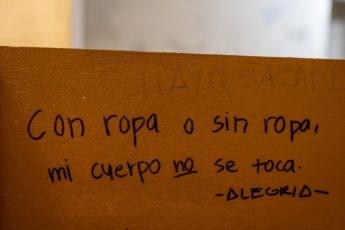 Con ropa o sin ropa,
mi cuerpo no se toca.
-ALEGRIA-